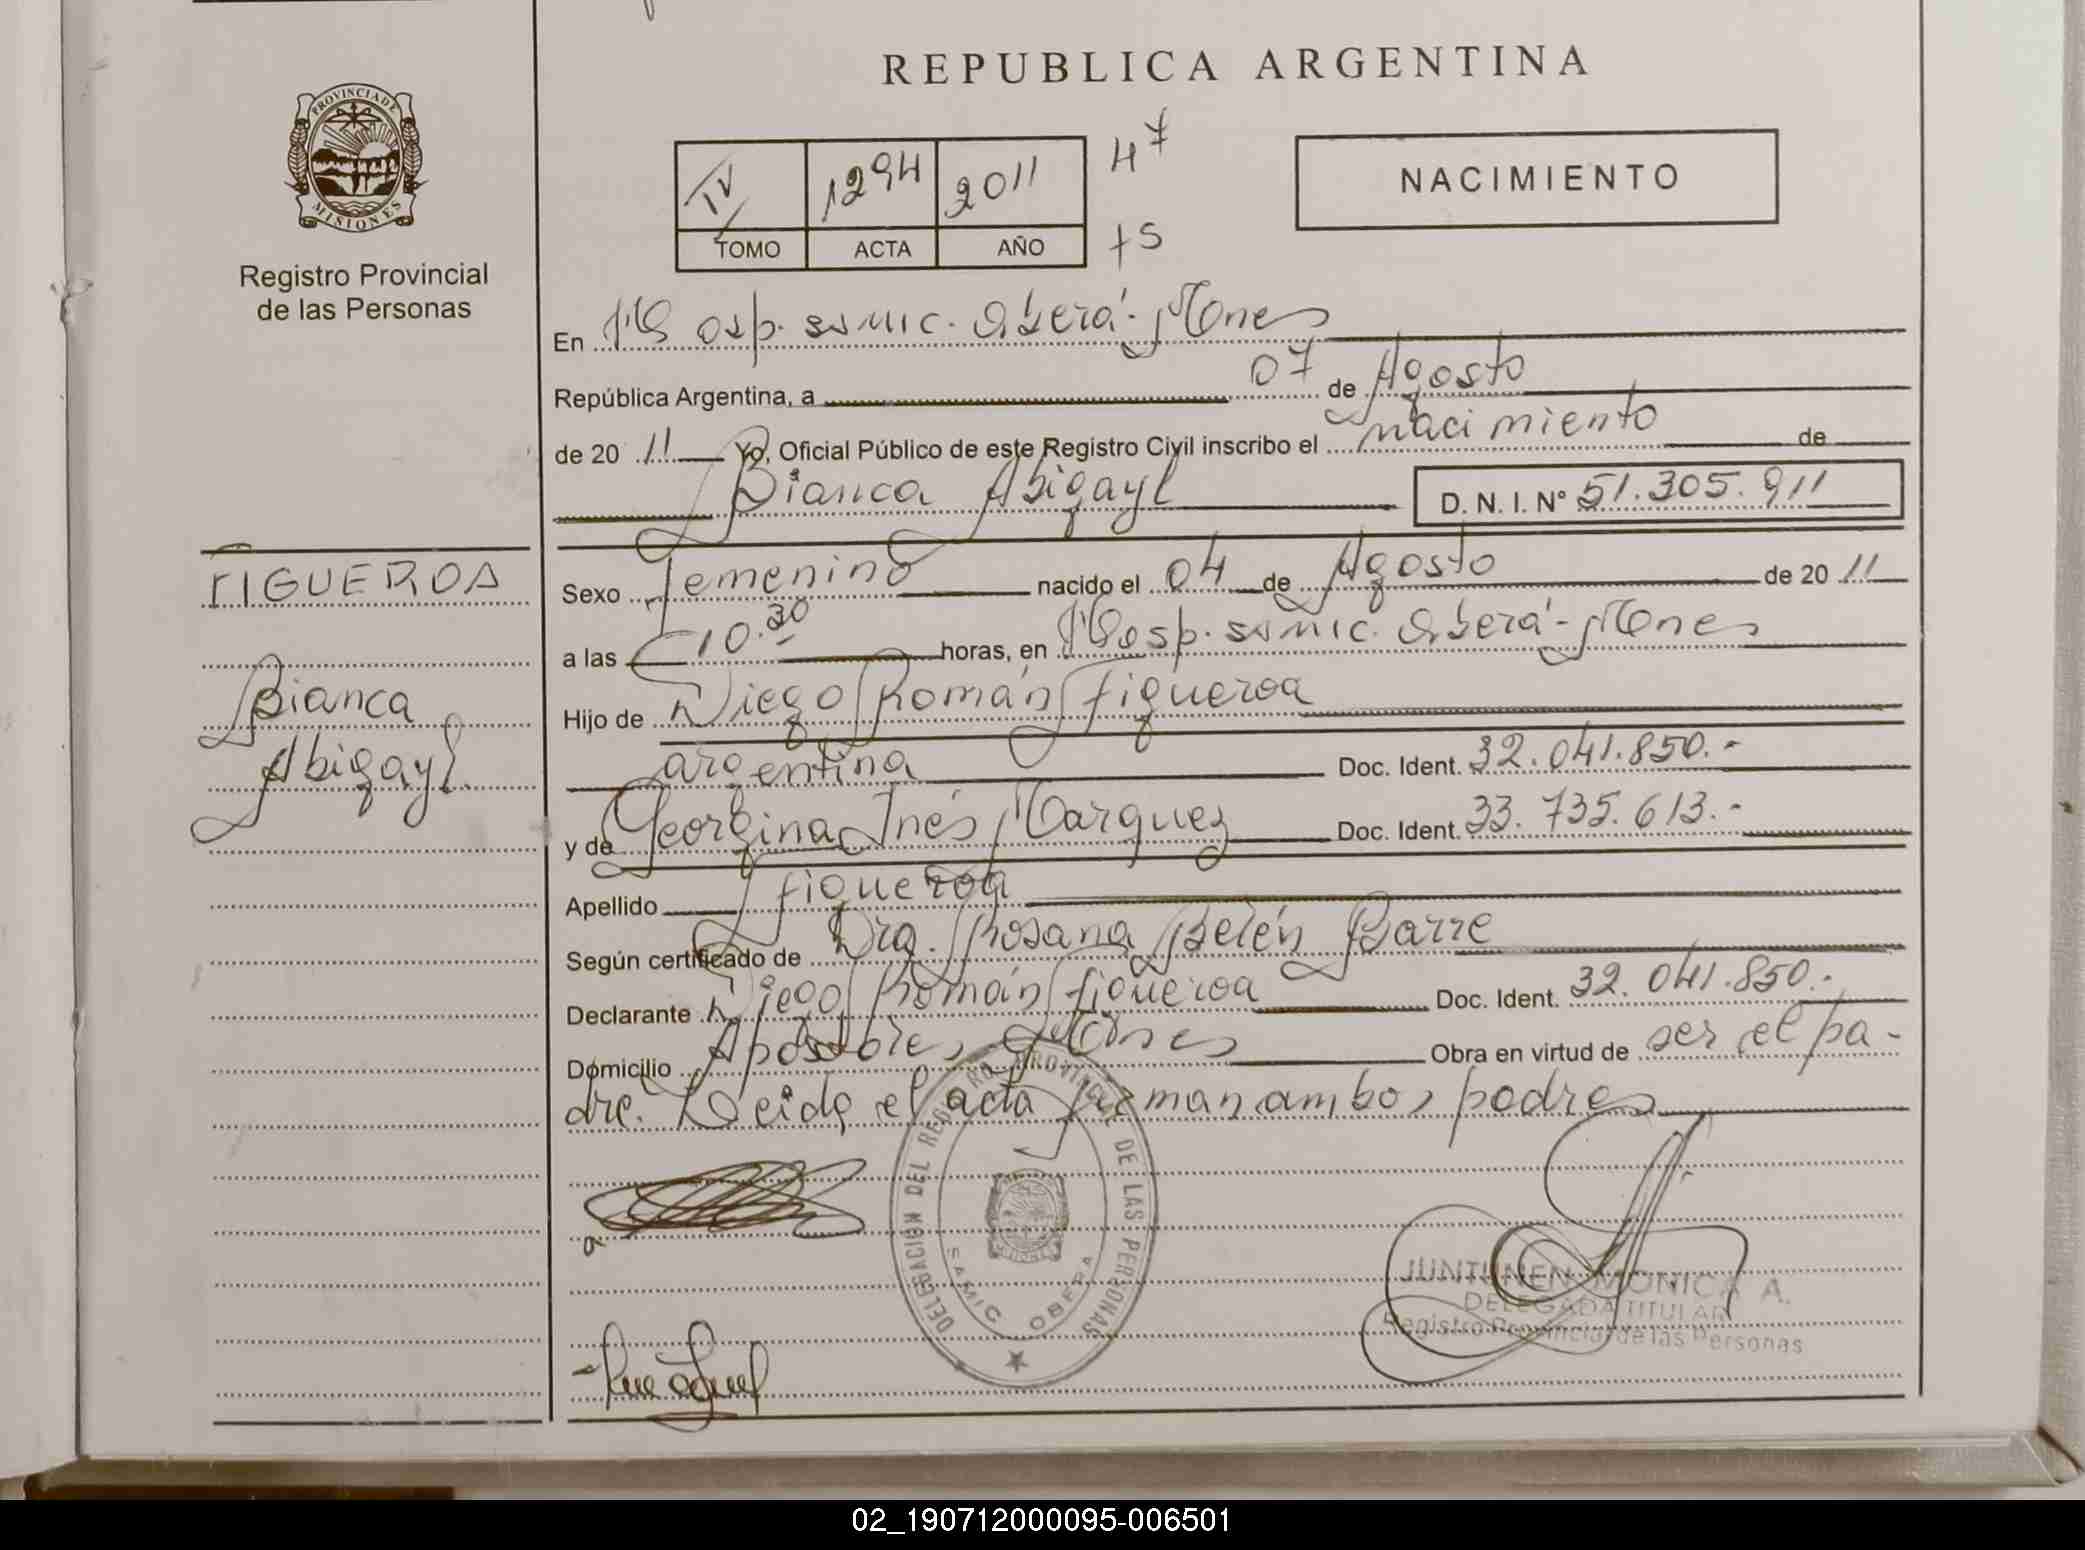 REPUBLICA ARGENTINA
PROVINCIA DE
MISIONES
Registro Provincial
de las Personas
IV 1294 2011
TOMO ACTA AÑO
47
75
NACIMIENTO
En Hosp. SAMIC. Oberá-Mones
República Argentina, a 07 de Agosto
de 2011 Yo, Oficial Público de este Registro Civil inscribo el nacimiento de
Bianca Abigayl D. N. I. Nº 51.305.911
FIGUEROA
Bianca
Abigayl.
Sexo femenino nacido el 04 de Agosto de 2011
a las 10.30 horas, en Hosp. SAMIC. Oberá-Mones
Hijo de Diego Román Figueroa
argentina Doc. Ident. 32.041.850.-
y de Georgina Inés Marquez Doc. Ident. 33.735.613.-
Apellido Figueroa
Según certificado de Dra. Rosana Belén Barre
Declarante Diego Román Figueroa Doc. Ident. 32.041.850.-
Domicilio Apóstoles, Mones Obra en virtud de ser el pa-
dre. Leida el acta firman ambos padres
DELEGACION DEL REGISTRO PROVINCIAL DE LAS PERSONAS
SAMIC OBERA
JUNTUNEN MONICA A.
DELEGADA TITULAR
Registro Provincial de las Personas
02_190712000095-006501